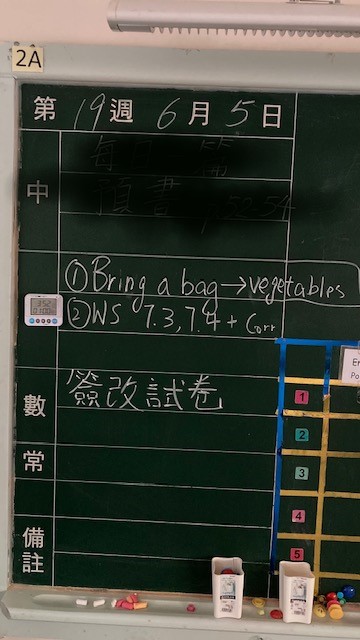 2A
第 19 週 6 月 5 日
中
①Bring a bag→vegetables
②WS 7.3, 7.4 + Corr
數 簽改試卷
常
備註
1
2
3
4
5